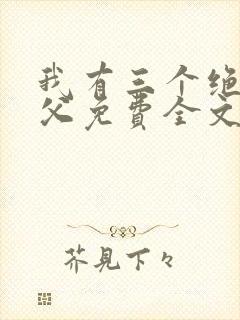 我有三个绝
父免费全文
芥見下々